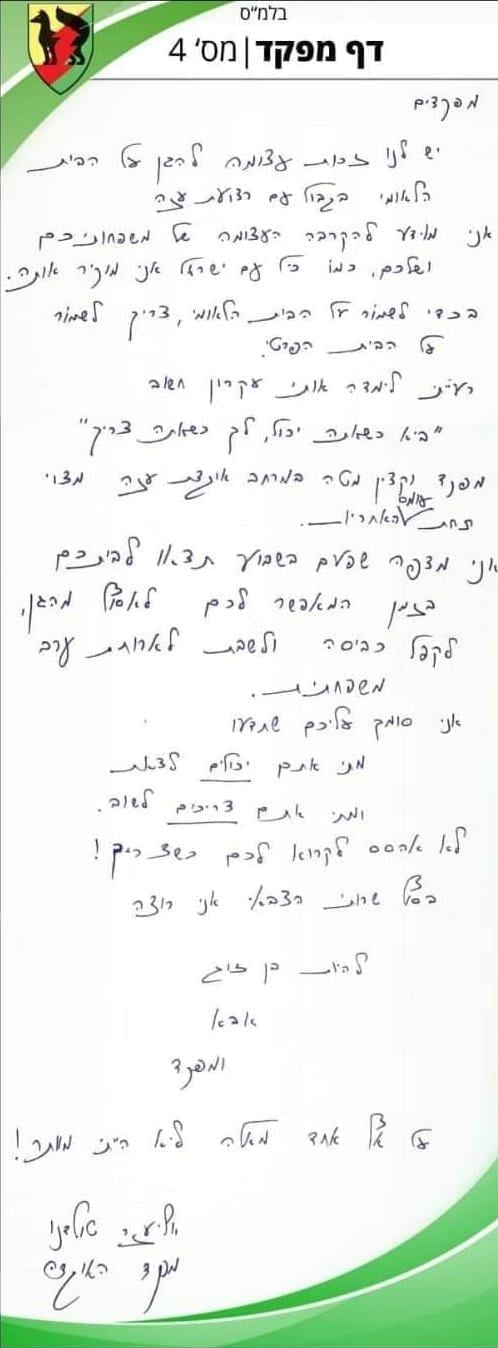 בלמ"ס
דף מפקד | מס' 4
מפקדים
יש לנו זכות עצומה להגן על הבית
הלאומי בגבול עם רצועת עזה
אני מודע להקרבה העצומה של משפחותיכם
ושלכם, כמו כל עם ישראל אני מוקיר אותה.
בכדי לשמור על הבית הלאומי, צריך לשמור
על הבית הפרטי.
רעייתי לימדה אותי עקרון חשוב
"בוא כשאתה יכול, לך כשאתה צריך"
מפקד וקצין מטה במרחב אוגדת עזה מצוי
תחת עומס האחריות.
אני מצפה שפעם בשבוע תצאו לביתכם
בזמן המאפשר לכם לאסוף מהגן,
לקפל כביסה ולשבת לארוחת ערב
משפחתית.
אני סומך עליכם שתדעו
מתי אתם יכולים לצאת
ומתי אתם צריכים לשוב.
לא אהסס לקרוא לכם כשצריך!
בסוף שירותי הצבאי אני רוצה
להיות בן זוג
אבא
ומפקד
על אף אחד מאלה לא הייתי מוותר!
מפקד האוגדה